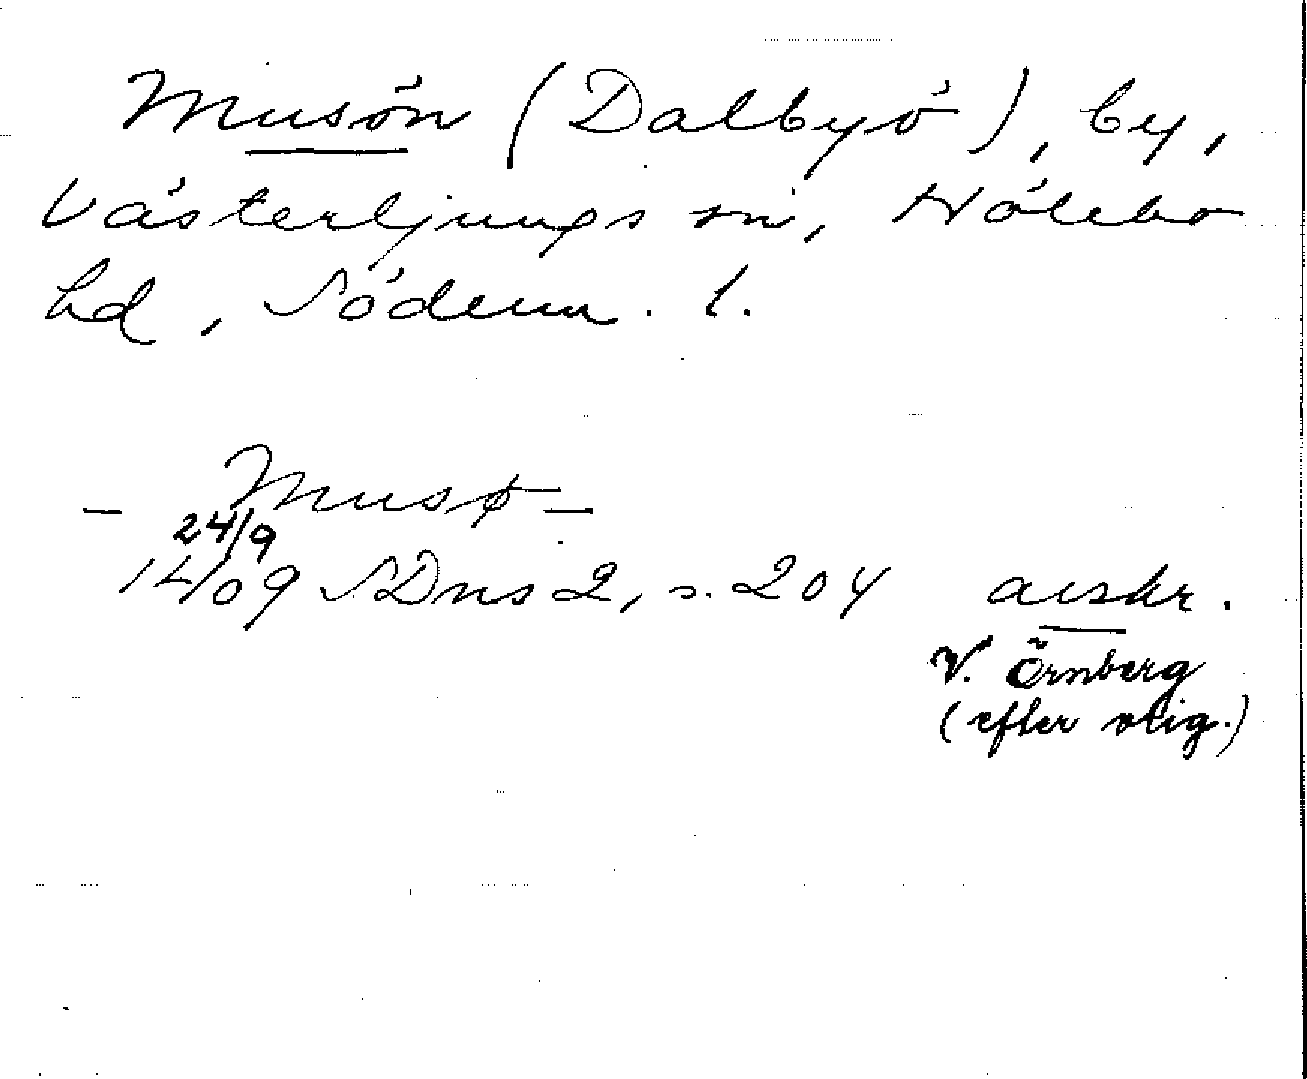 Musön (Dalbyö), by,
Västerljungs sn, Hölebo
hd, Söderm. l.
- Musø -
24/9
1409 SDns 2, s. 204 avskr.
V. Örnberg
(efter orig.)